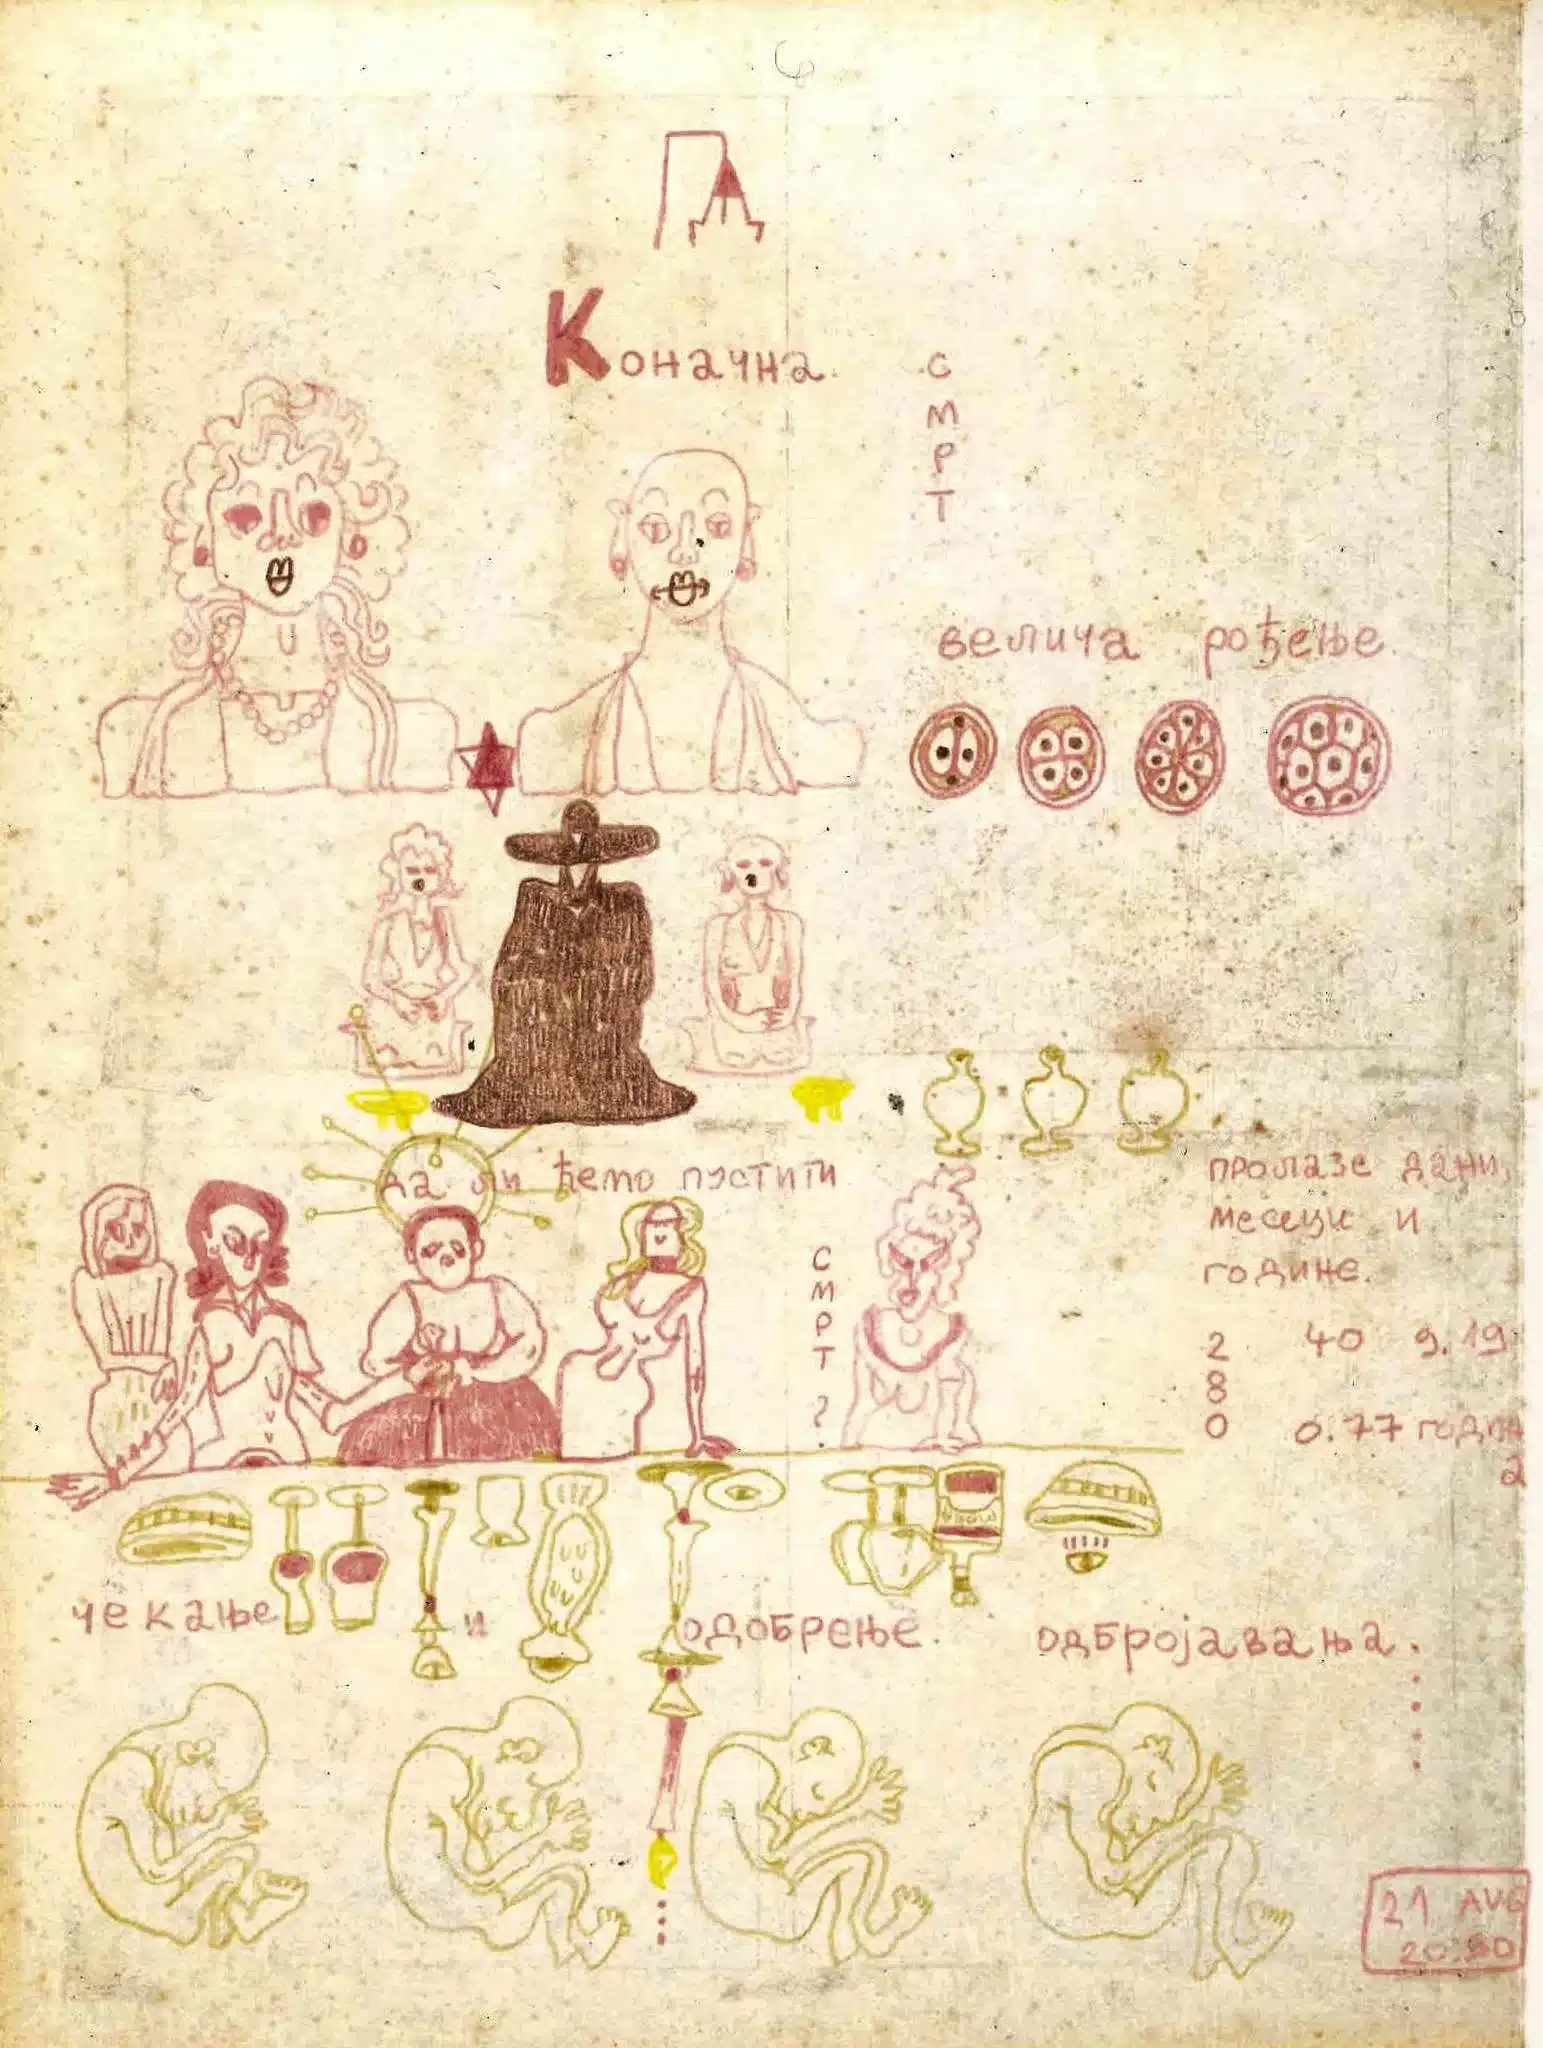 Коначна
СМРТ
велича рођење.
да ли ћемо пустити
СМРТ?
пролазе дани,
месеци и
године.
280
40 9.19
0.77 година
чекање и одобрење. одбројавања.
21 AUG